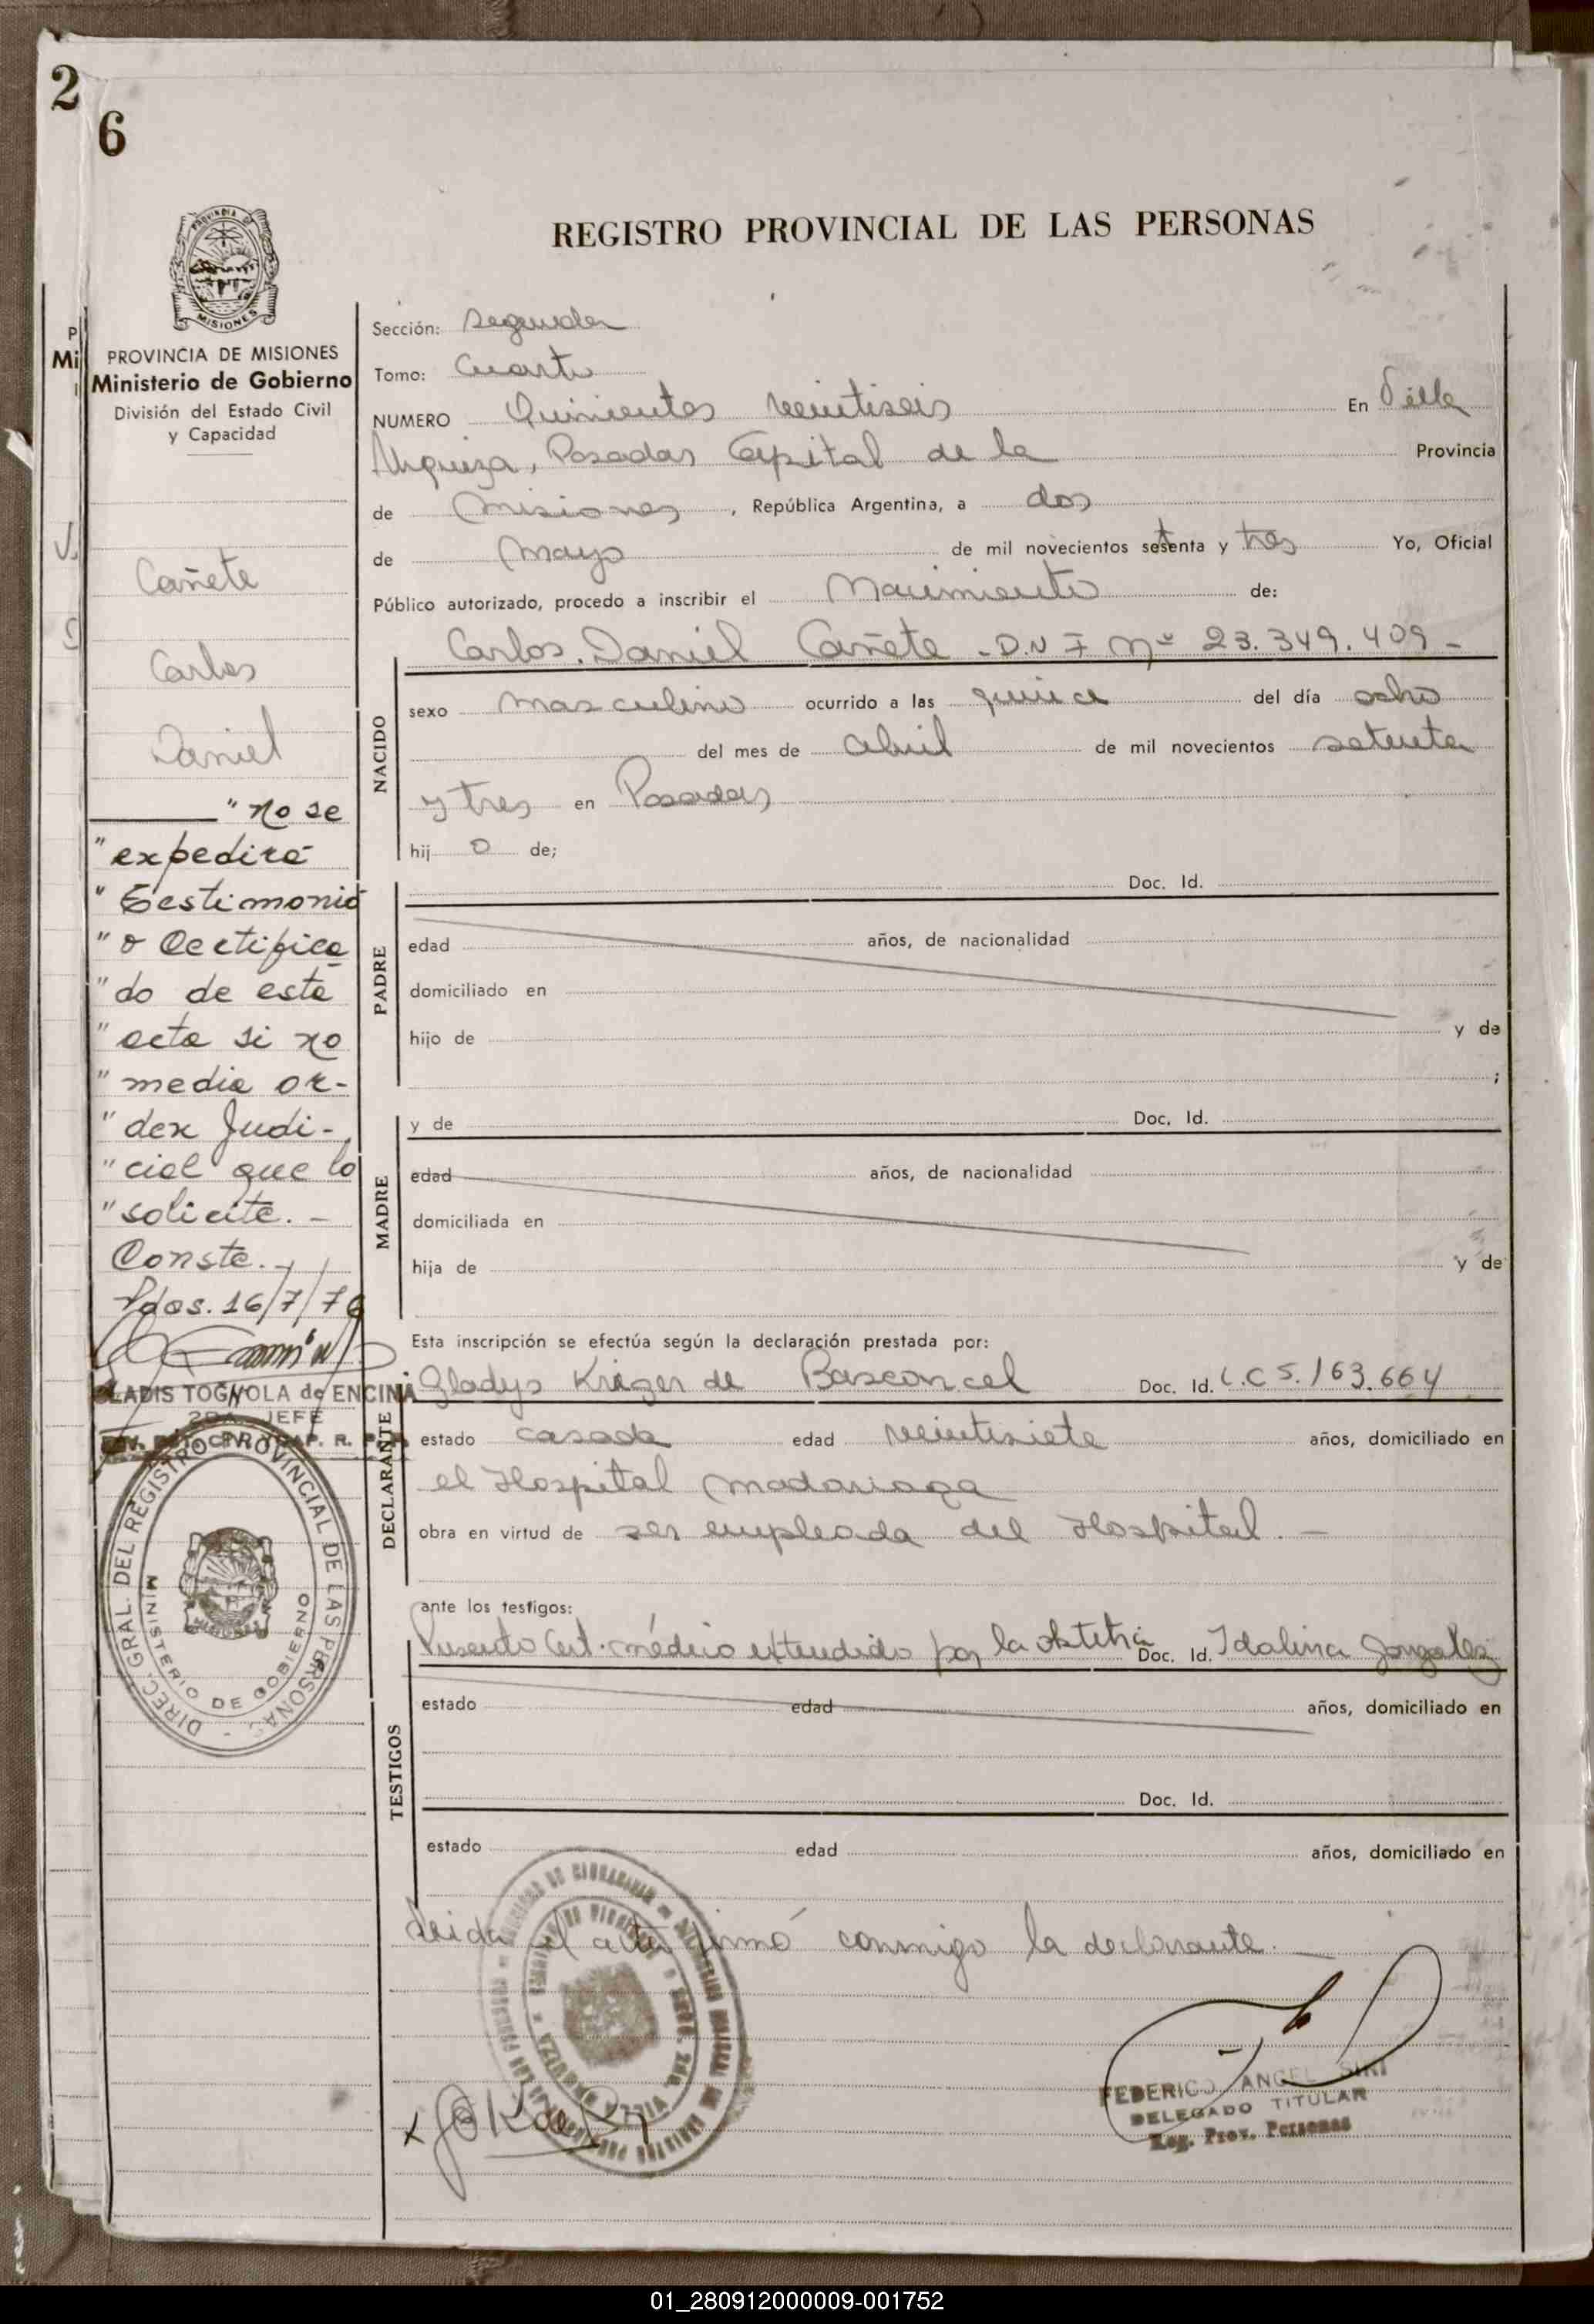 2
6
PROVINCIA D
MISIONES
REGISTRO PROVINCIAL DE LAS PERSONAS
P
Mi
PROVINCIA DE MISIONES
Ministerio de Gobierno
División del Estado Civil
y Capacidad
Sección: segunda
Tomo: Cuarto
NUMERO Quinientos veintiseis En Villa
Urquiza, Posadas Capital de la Provincia
de Misiones, República Argentina, a dos
de Mayo de mil novecientos setenta y tres Yo, Oficial
Público autorizado, procedo a inscribir el Nacimiento de:
Carlos Daniel Cañete - D.N I Nº 23.349.409 -
NACIDO
sexo masculino ocurrido a las quince del día ocho
del mes de abril de mil novecientos setenta
y tres en Posadas
hij o de;
PADRE
Doc. Id.
edad años, de nacionalidad
domiciliado en
hijo de y de
;
MADRE
y de Doc. Id.
edad años, de nacionalidad
domiciliada en
hija de y de
Esta inscripción se efectúa según la declaración prestada por:
DECLARANTE
Gladys Krieger de Basconcel Doc. Id. L.C 5.163.664
estado casada edad veintisiete años, domiciliado en
el Hospital Madariaga
obra en virtud de ser empleada del Hospital. -
ante los testigos:
TESTIGOS
Presento Cert. médico extendido por la obstetra Doc. Id. Idalina Gonzalez
estado edad años, domiciliado en
Doc. Id.
estado edad años, domiciliado en
Leida el acta firmó conmigo la declarante. -
FEDERICO ANGEL SIRI
DELEGADO TITULAR
Reg. Prov. Personas
Cañete
Carlos
Daniel
" no se
" expedirá
" Testimonio
" o Certifica
" do de esta
" acta si no
" media or-
" den Judi-
" cial que lo
" solicite. -
Conste. -
Pdas. 16/7/76
GLADIS TOGNOLA de ENCINA
2DA. JEFE
DIREC. GRAL. DEL REGISTRO PROVINCIAL DE LAS PERSONAS
MINISTERIO DE GOBIERNO
01_280912000009-001752